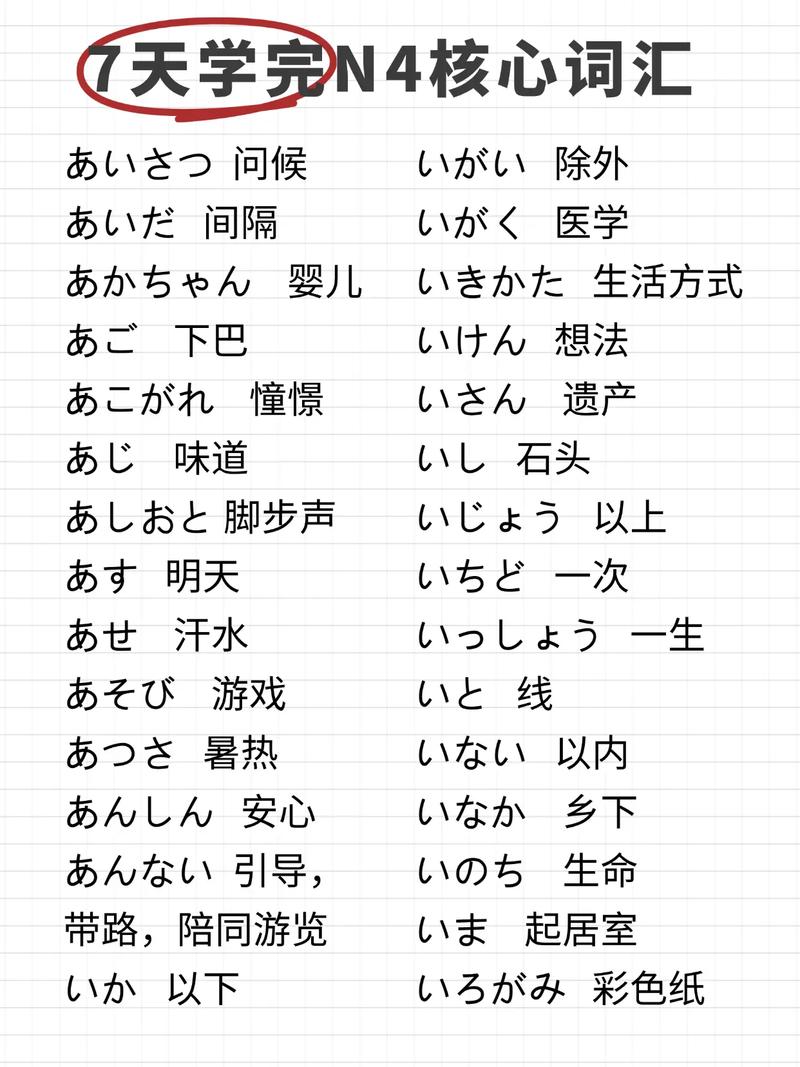 7天学完N4核心词汇
あいさつ 问候
あいだ 间隔
あかちゃん 婴儿
あご 下巴
あこがれ 憧憬
あじ 味道
あしおと 脚步声
あす 明天
あせ 汗水
あそび 游戏
あつさ 暑热
あんしん 安心
あんない 引导，
带路，陪同游览
いか 以下
いがい 除外
いがく 医学
いきかた 生活方式
いけん 想法
いさん 遗产
いし 石头
いじょう 以上
いちど 一次
いっしょう 一生
いと 线
いない 以内
いなか 乡下
いのち 生命
いま 起居室
いろがみ 彩色纸